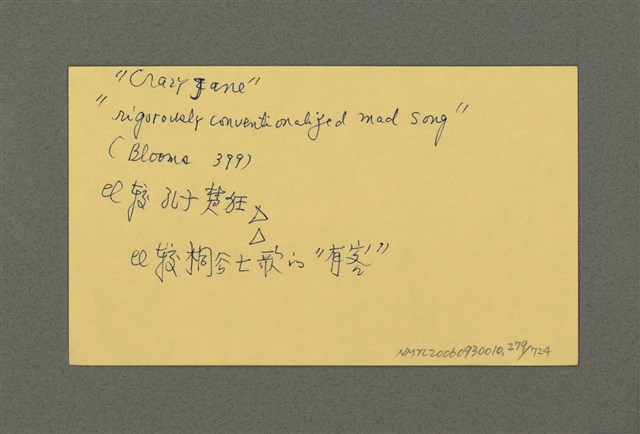 "Crazy Jane"
"rigorously conventionalized mad song"
(Blooms 399)
比較孔子楚狂
比較桐谷七歌的"有客"
NMTL20060930010,279/724